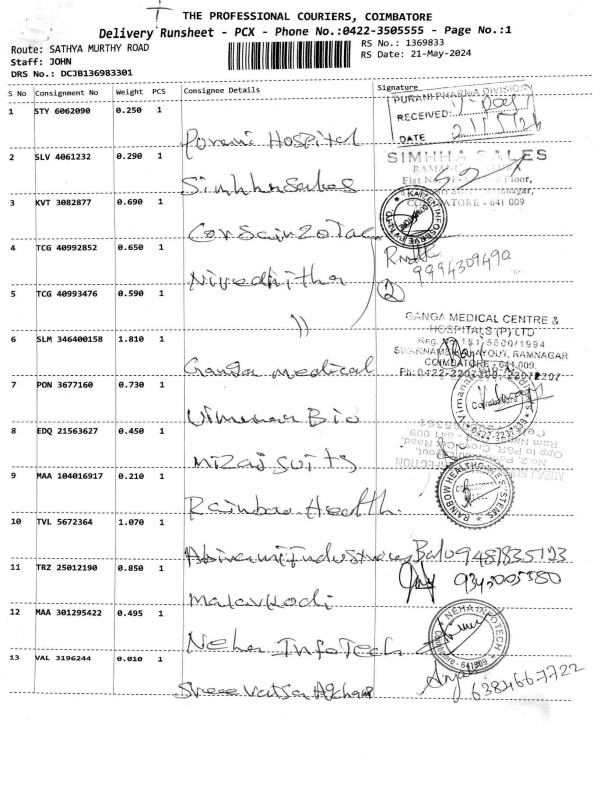 THE PROFESSIONAL COURIERS, COIMBATORE
Delivery Runsheet - PCX - Phone No.:0422-3505555 - Page No.:1
Route: SATHYA MURTHY ROAD
RS No.: 1369833
Staff: JOHN
RS Date: 21-May-2024
DRS No.: DCJB136983301
S No Consignment No Weight PCS Consignee Details Signature
1 STY 6062090 0.250 1
PURANI PHARMA DIVISION
RECEIVED:
DATE
Porani Hospital
2 SLV 4061232 0.290 1
SIMHHA SALES
Floor,
COIMBATORE - 641 009
Simhhasales
3 KVT 3082877 0.690 1
4 TCG 40992852 0.650 1
Nivedhitha
9994309490
5 TCG 40993476 0.590 1
2
"
GANGA MEDICAL CENTRE &
HOSPITALS (P) LTD
SWARNAMBIKA LAYOUT, RAMNAGAR
COIMBATORE - 641 009.
6 SLM 346400158 1.810 1
Ganga medical
7 PON 3677160 0.730 1
Vimenar Bio
8 EDQ 21563627 0.450 1
Mizaj suits
9 MAA 104016917 0.210 1
RAINBOW HEALTHCARE SYSTEMS
Rainbow Health
10 TVL 5672364 1.070 1
Abirami industries
11 TRZ 25012190 0.850 1
Malarkodi
12 MAA 301295422 0.495 1
NEHA INFOTECH
Coimbatore - 641009
Neha InfoTech
13 VAL 3196244 0.010 1
6384667722